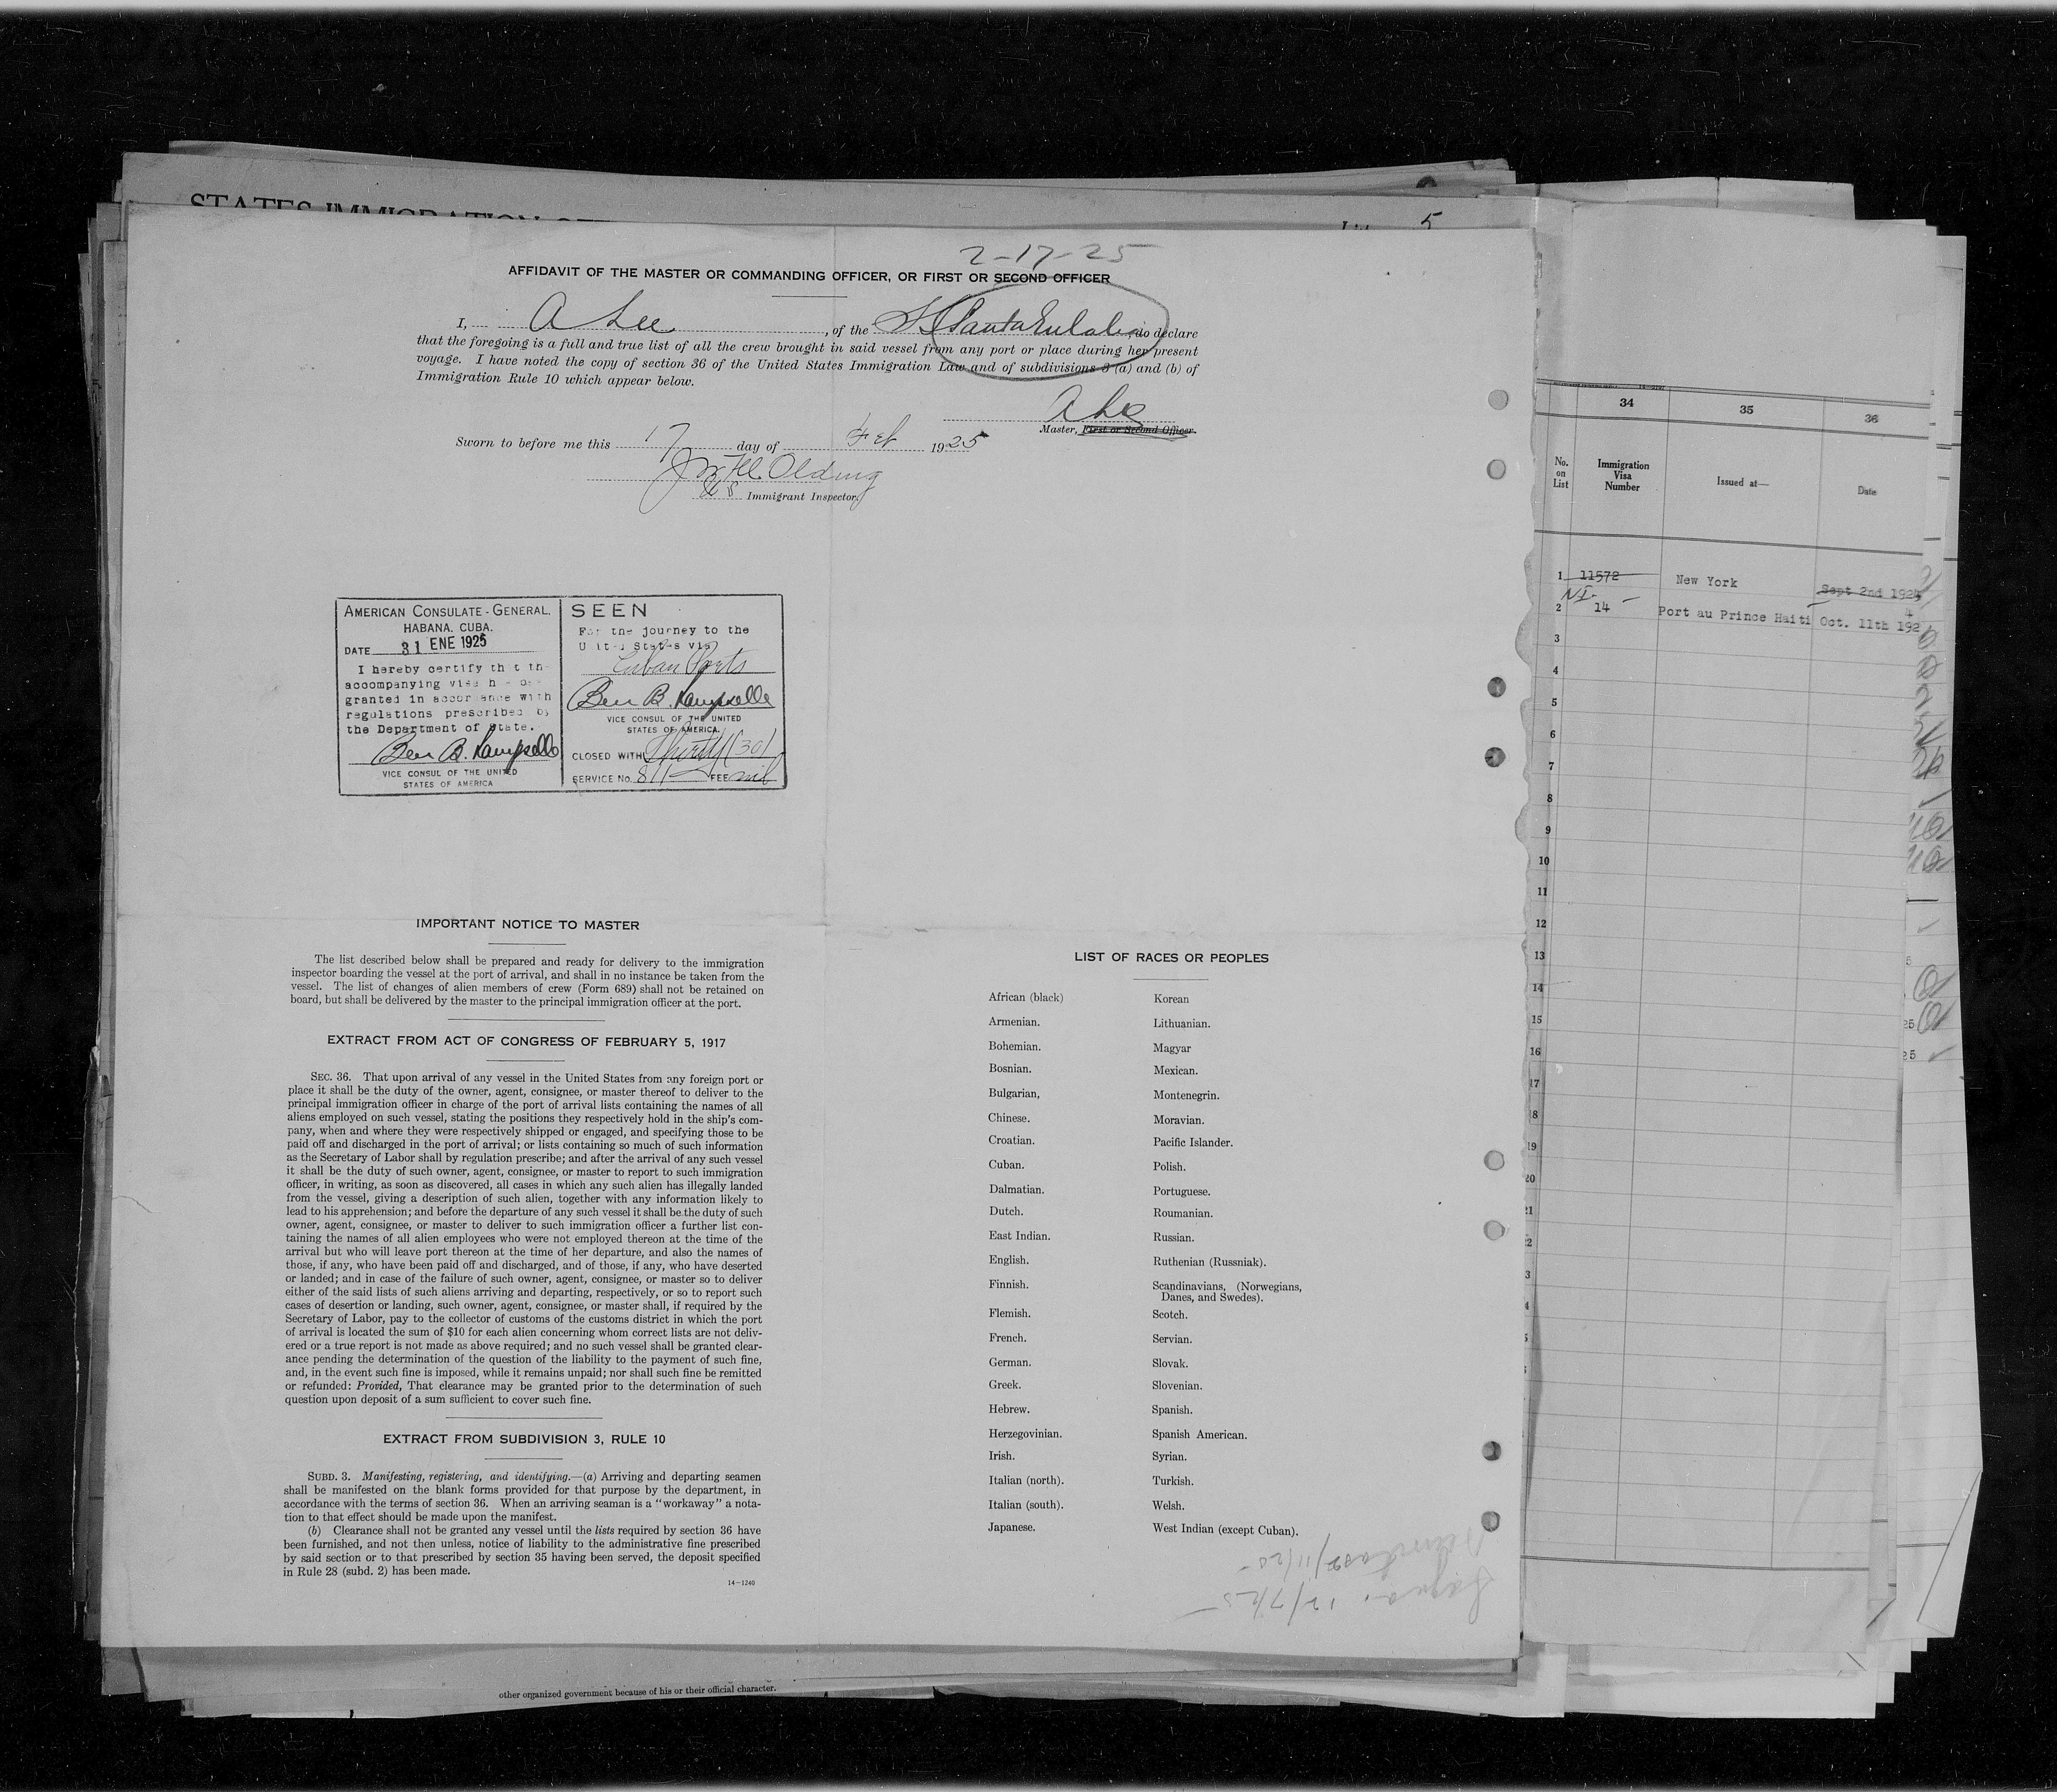 5
2-17-25
AFFIDAVIT OF THE MASTER OR COMMANDING OFFICER, OR FIRST OR SECOND OFFICER
I, A Lee, of the Santa Eulalia, do declare
that the foregoing is a full and true list of all the crew brought in said vessel from any port or place during her present
voyage. I have noted the copy of section 36 of the United States Immigration Law and of subdivisions 3 (a) and (b) of
Immigration Rule 10 which appear below.
A Lee
Master, First or Second Officer.
Sworn to before me this 17 day of Feb 1925
Olding
US Immigrant Inspector.
AMERICAN CONSULATE-GENERAL,
HABANA, CUBA.
DATE 31 ENE 1925
I hereby certify that the
accompanying visa has been
granted in accordance with
regulations prescribed by
the Department of State.
Ben B.
VICE CONSUL OF THE UNITED
STATES OF AMERICA
SEEN
For the journey to the
United States via
Cuban Ports
Ben B.
VICE CONSUL OF THE UNITED
STATES OF AMERICA.
CLOSED WITH Thirty (30)
SERVICE No. 811 FEE nil
IMPORTANT NOTICE TO MASTER
The list described below shall be prepared and ready for delivery to the immigration
inspector boarding the vessel at the port of arrival, and shall in no instance be taken from the
vessel. The list of changes of alien members of crew (Form 689) shall not be retained on
board, but shall be delivered by the master to the principal immigration officer at the port.
EXTRACT FROM ACT OF CONGRESS OF FEBRUARY 5, 1917
SEC. 36. That upon arrival of any vessel in the United States from any foreign port or
place it shall be the duty of the owner, agent, consignee, or master thereof to deliver to the
principal immigration officer in charge of the port of arrival lists containing the names of all
aliens employed on such vessel, stating the positions they respectively hold in the ship's com-
pany, when and where they were respectively shipped or engaged, and specifying those to be
paid off and discharged in the port of arrival; or lists containing so much of such information
as the Secretary of Labor shall by regulation prescribe; and after the arrival of any such vessel
it shall be the duty of such owner, agent, consignee, or master to report to such immigration
officer, in writing, as soon as discovered, all cases in which any such alien has illegally landed
from the vessel, giving a description of such alien, together with any information likely to
lead to his apprehension; and before the departure of any such vessel it shall be the duty of such
owner, agent, consignee, or master to deliver to such immigration officer a further list con-
taining the names of all alien employees who were not employed thereon at the time of the
arrival but who will leave port thereon at the time of her departure, and also the names of
those, if any, who have been paid off and discharged, and of those, if any, who have deserted
or landed; and in case of the failure of such owner, agent, consignee, or master so to deliver
either of the said lists of such aliens arriving and departing, respectively, or so to report such
cases of desertion or landing, such owner, agent, consignee, or master shall, if required by the
Secretary of Labor, pay to the collector of customs of the customs district in which the port
of arrival is located the sum of $10 for each alien concerning whom correct lists are not deliv-
ered or a true report is not made as above required; and no such vessel shall be granted clear-
ance pending the determination of the question of the liability to the payment of such fine,
and, in the event such fine is imposed, while it remains unpaid; nor shall such fine be remitted
or refunded: Provided, That clearance may be granted prior to the determination of such
question upon deposit of a sum sufficient to cover such fine.
EXTRACT FROM SUBDIVISION 3, RULE 10
SUBD. 3. Manifesting, registering, and identifying.—(a) Arriving and departing seamen
shall be manifested on the blank forms provided for that purpose by the department, in
accordance with the terms of section 36. When an arriving seaman is a "workaway" a nota-
tion to that effect should be made upon the manifest.
(b) Clearance shall not be granted any vessel until the lists required by section 36 have
been furnished, and not then unless, notice of liability to the administrative fine prescribed
by said section or to that prescribed by section 35 having been served, the deposit specified
in Rule 28 (subd. 2) has been made.
14—1240
LIST OF RACES OR PEOPLES
African (black)
Armenian.
Bohemian.
Bosnian.
Bulgarian,
Chinese.
Croatian.
Cuban.
Dalmatian.
Dutch.
East Indian.
English.
Finnish.
Flemish.
French.
German.
Greek.
Hebrew.
Herzegovinian.
Irish.
Italian (north).
Italian (south).
Japanese.
Korean
Lithuanian.
Magyar
Mexican.
Montenegrin.
Moravian.
Pacific Islander.
Polish.
Portuguese.
Roumanian.
Russian.
Ruthenian (Russniak).
Scandinavians, (Norwegians,
Danes, and Swedes).
Scotch.
Servian.
Slovak.
Slovenian.
Spanish.
Spanish American.
Syrian.
Turkish.
Welsh.
West Indian (except Cuban).
34 35 36
No. on List
Immigration Visa Number
Issued at—
Date
1 11572 New York Sept 2nd 1924
NI-
2 14 Port au Prince Haiti Oct. 11th 1924
3
4
5
6
7
8
9
10
11
12
13
14
15
16
17
18
19
20
21
other organized government because of his or their official character.